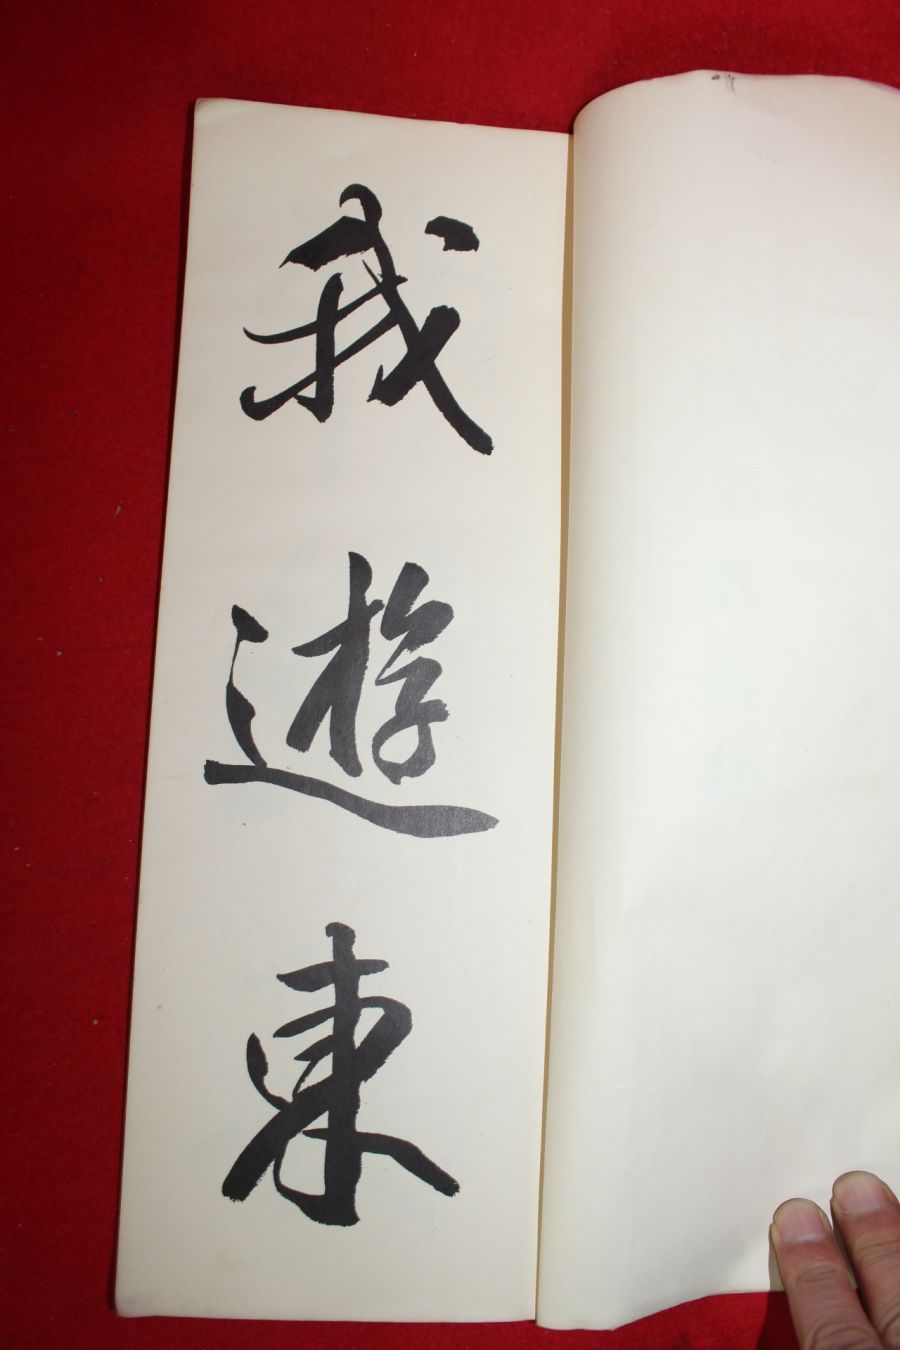 我遊東